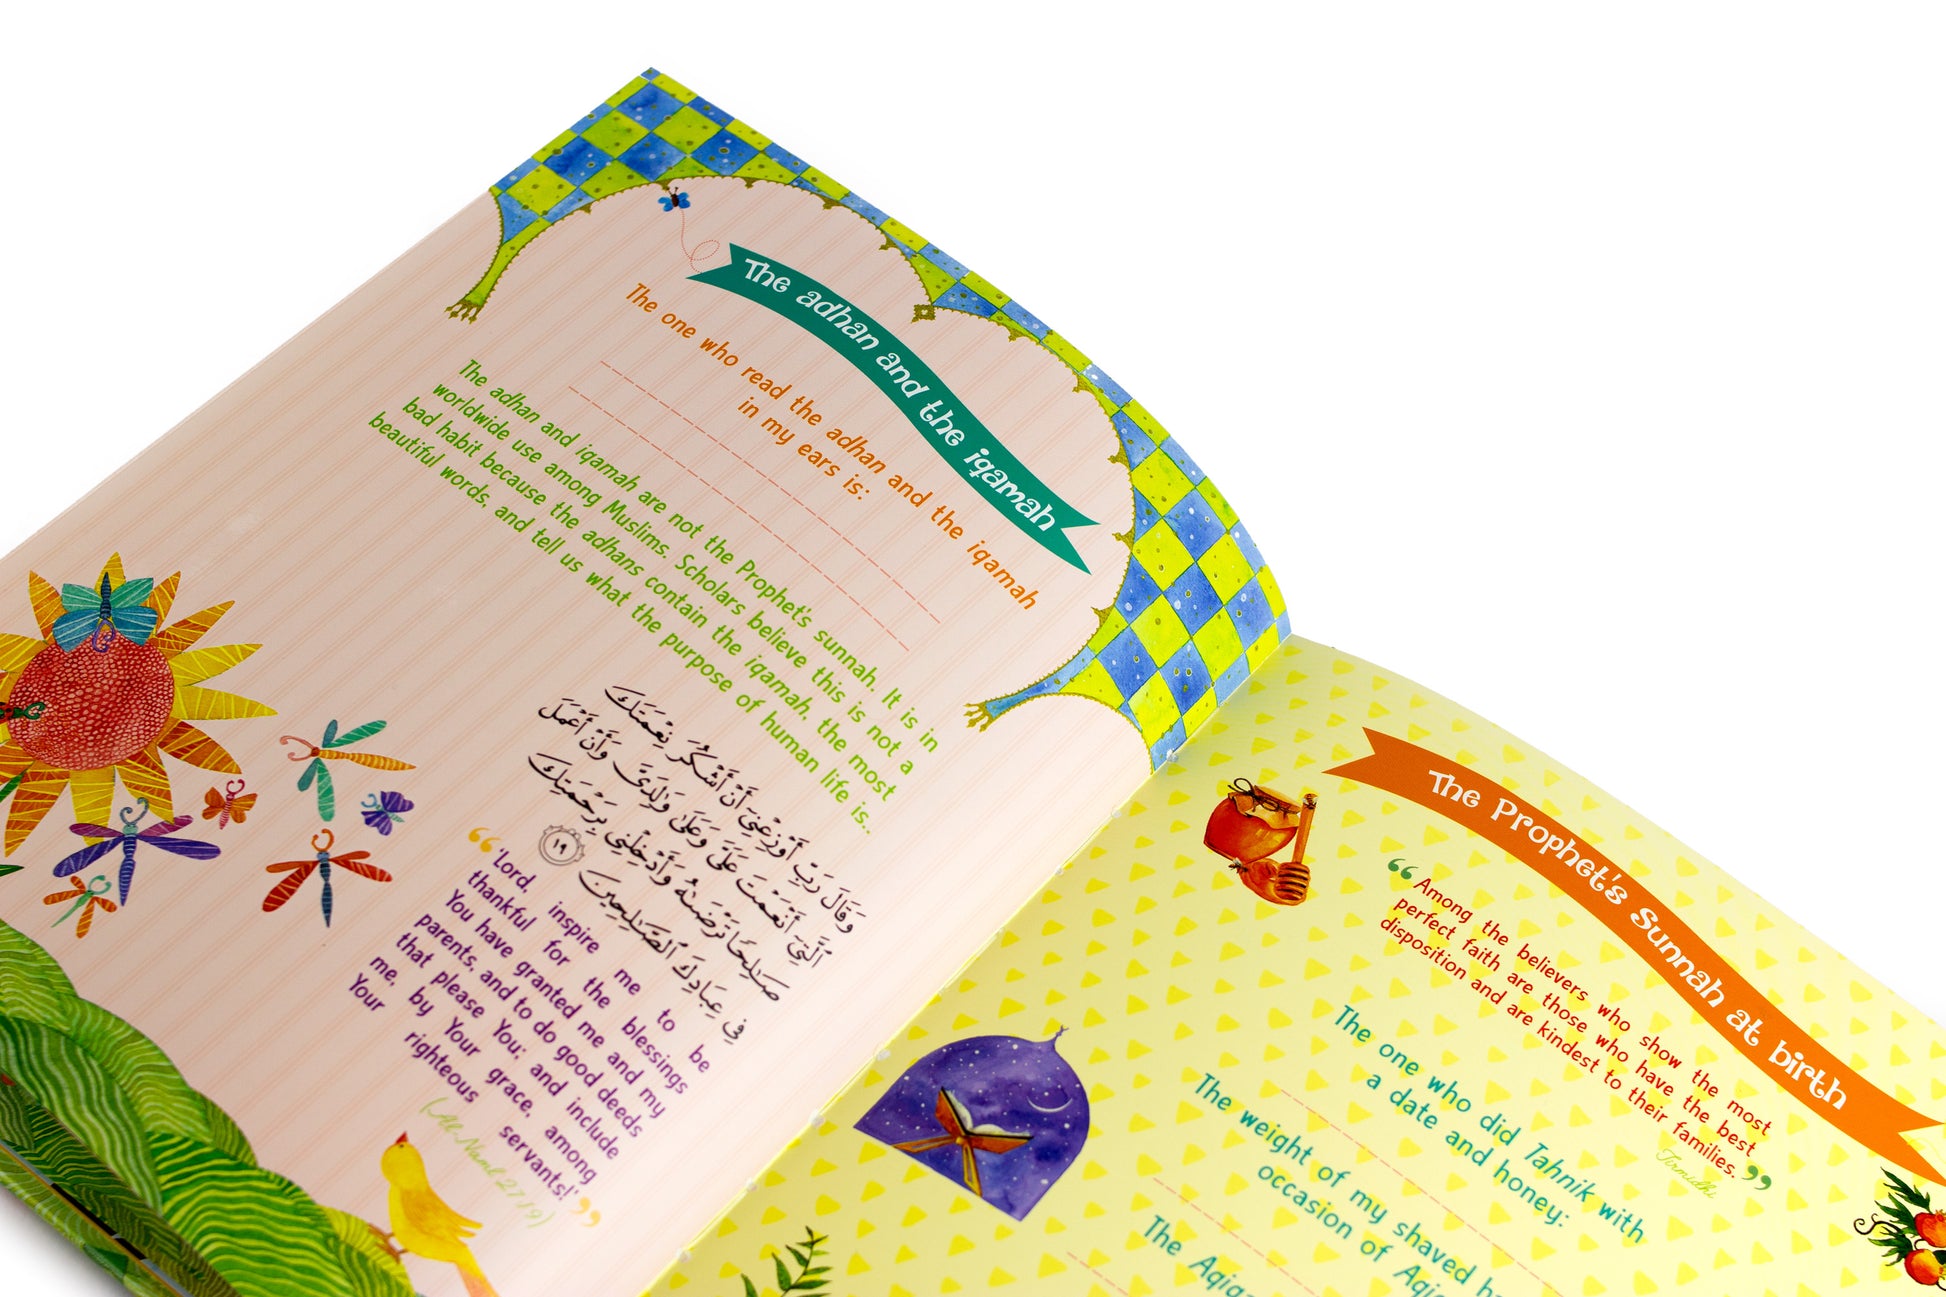 The adhan and the iqamah
The one who read the adhan and the iqamah
in my ears is:
The adhan and iqamah are not the Prophet's sunnah. It is in
worldwide use among Muslims. Scholars believe this is not a
bad habit because the adhans contain the iqamah, the most
beautiful words, and tell us what the purpose of human life is..
وَقَالَ رَبِّ أَوْزِعْنِىٓ أَنْ أَشْكُرَ نِعْمَتَكَ
ٱلَّتِىٓ أَنْعَمْتَ عَلَىَّ وَعَلَىٰ وَٰلِدَىَّ وَأَنْ أَعْمَلَ
صَٰلِحًا تَرْضَىٰهُ وَأَدْخِلْنِى بِرَحْمَتِكَ
فِى عِبَادِكَ ٱلصَّٰلِحِينَ ١٩
“'Lord, inspire me to be
thankful for the blessings
You have granted me and my
parents, and to do good deeds
that please You; and include
me, by Your grace, among
Your righteous servants!'”
(Al Naml 27:19)
The Prophet's Sunnah at birth
“Among the believers who show the most
perfect faith are those who have the best
disposition and are kindest to their families.”
Tirmidhi
The one who did Tahnik with
a date and honey:
The weight of my shaved h
occasion of Aqi
The Aqiq